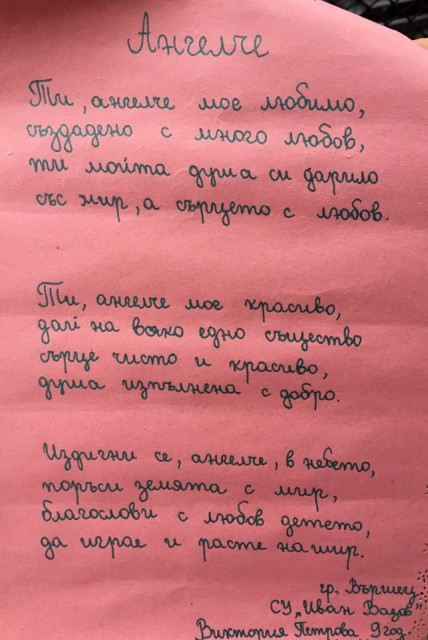 Ангелче
Ти, ангелче мое любимо,
създадено с много любов,
ти мойта душа си дарило
със мир, а сърцето с любов.
Ти, ангелче мое красиво,
дай на всяко едно същество
сърце чисто и красиво,
душа изпълнена с добро.
Издигни се, ангелче, в небето,
поръси земята с мир,
благослови с любов детето,
да играе и расте на шир.
гр. Вършец
СУ „Иван Вазов"
Виктория Петрова 9 год.